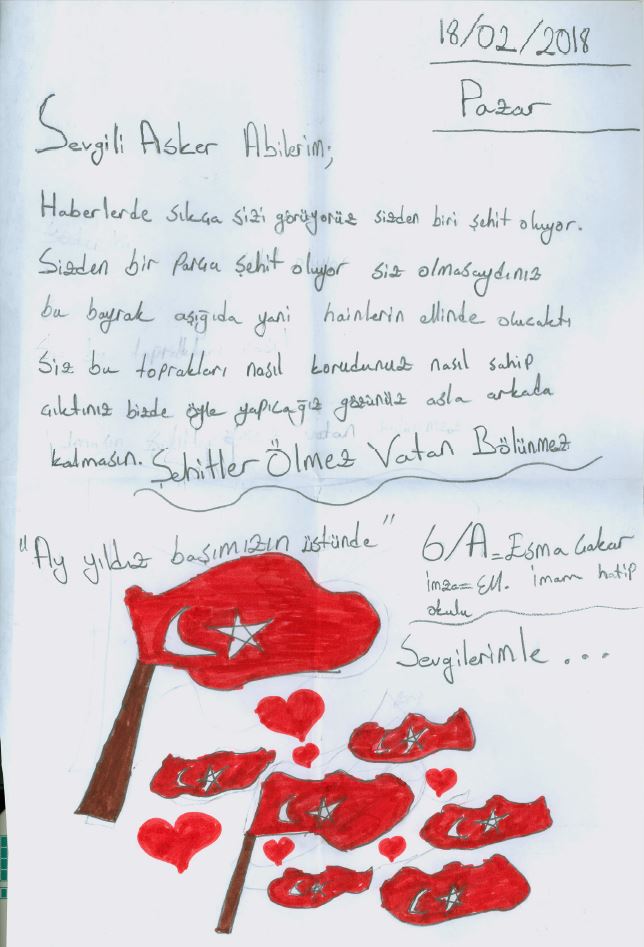 18/02/2018
Pazar
Sevgili Asker Abilerim;
Haberlerde sıkça sizi görüyoruz sizden biri şehit oluyor.
Sizden bir parça şehit oluyor siz olmasaydınız
bu bayrak aşığıda yani hainlerin ellinde olucaktı
Siz bu toprakları nasıl korudunuz nasıl sahip
çıktınız bizde öyle yapıcağız gözünüz asla arkada
kalmasın. Şehitler Ölmez Vatan Bölünmez
"Ay yıldız başımızın üstünde"
6/A = Esma Çakar
imza= EM. imam hatip
okulu
Sevgilerimle...